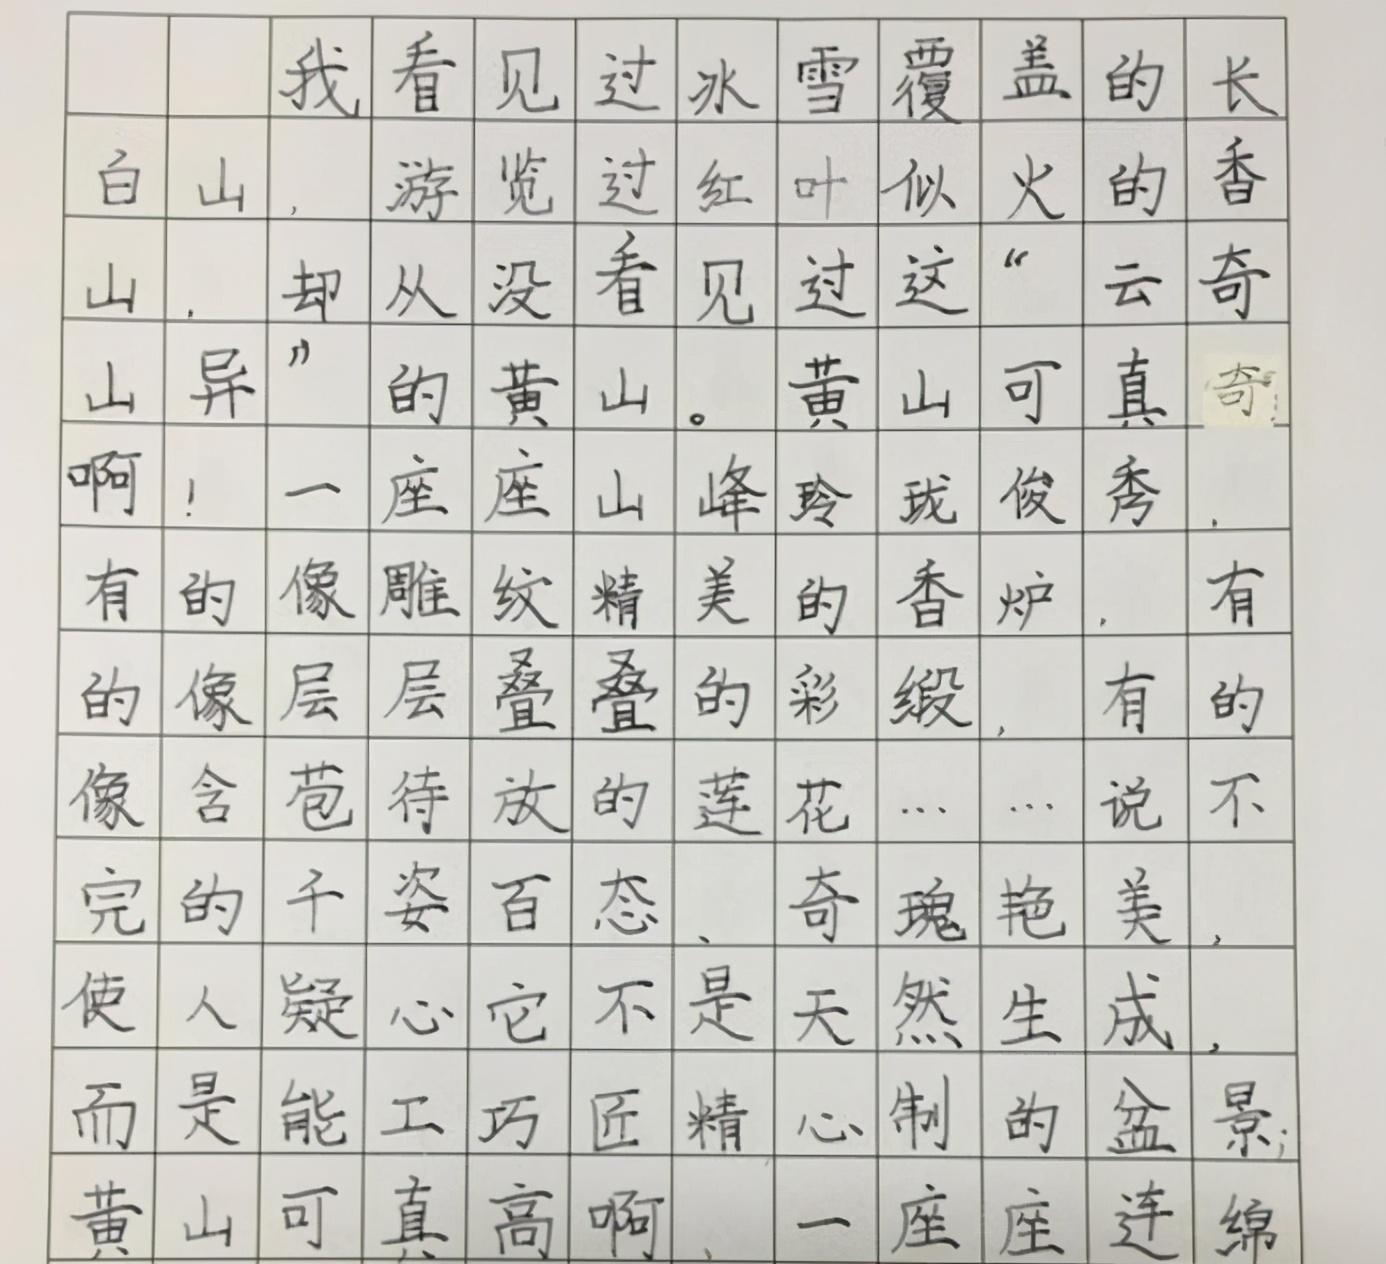 我看见过冰雪覆盖的长
白山，游览过红叶似火的香
山，却从没看见过这“云奇
山异”的黄山。黄山可真奇
啊！一座座山峰玲珑俊秀，
有的像雕纹精美的香炉，有
的像层层叠叠的彩缎，有的
像含苞待放的莲花……说不
完的千姿百态、奇瑰艳美，
使人疑心它不是天然生成，
而是能工巧匠精心制的盆景；
黄山可真高啊，一座座连绵